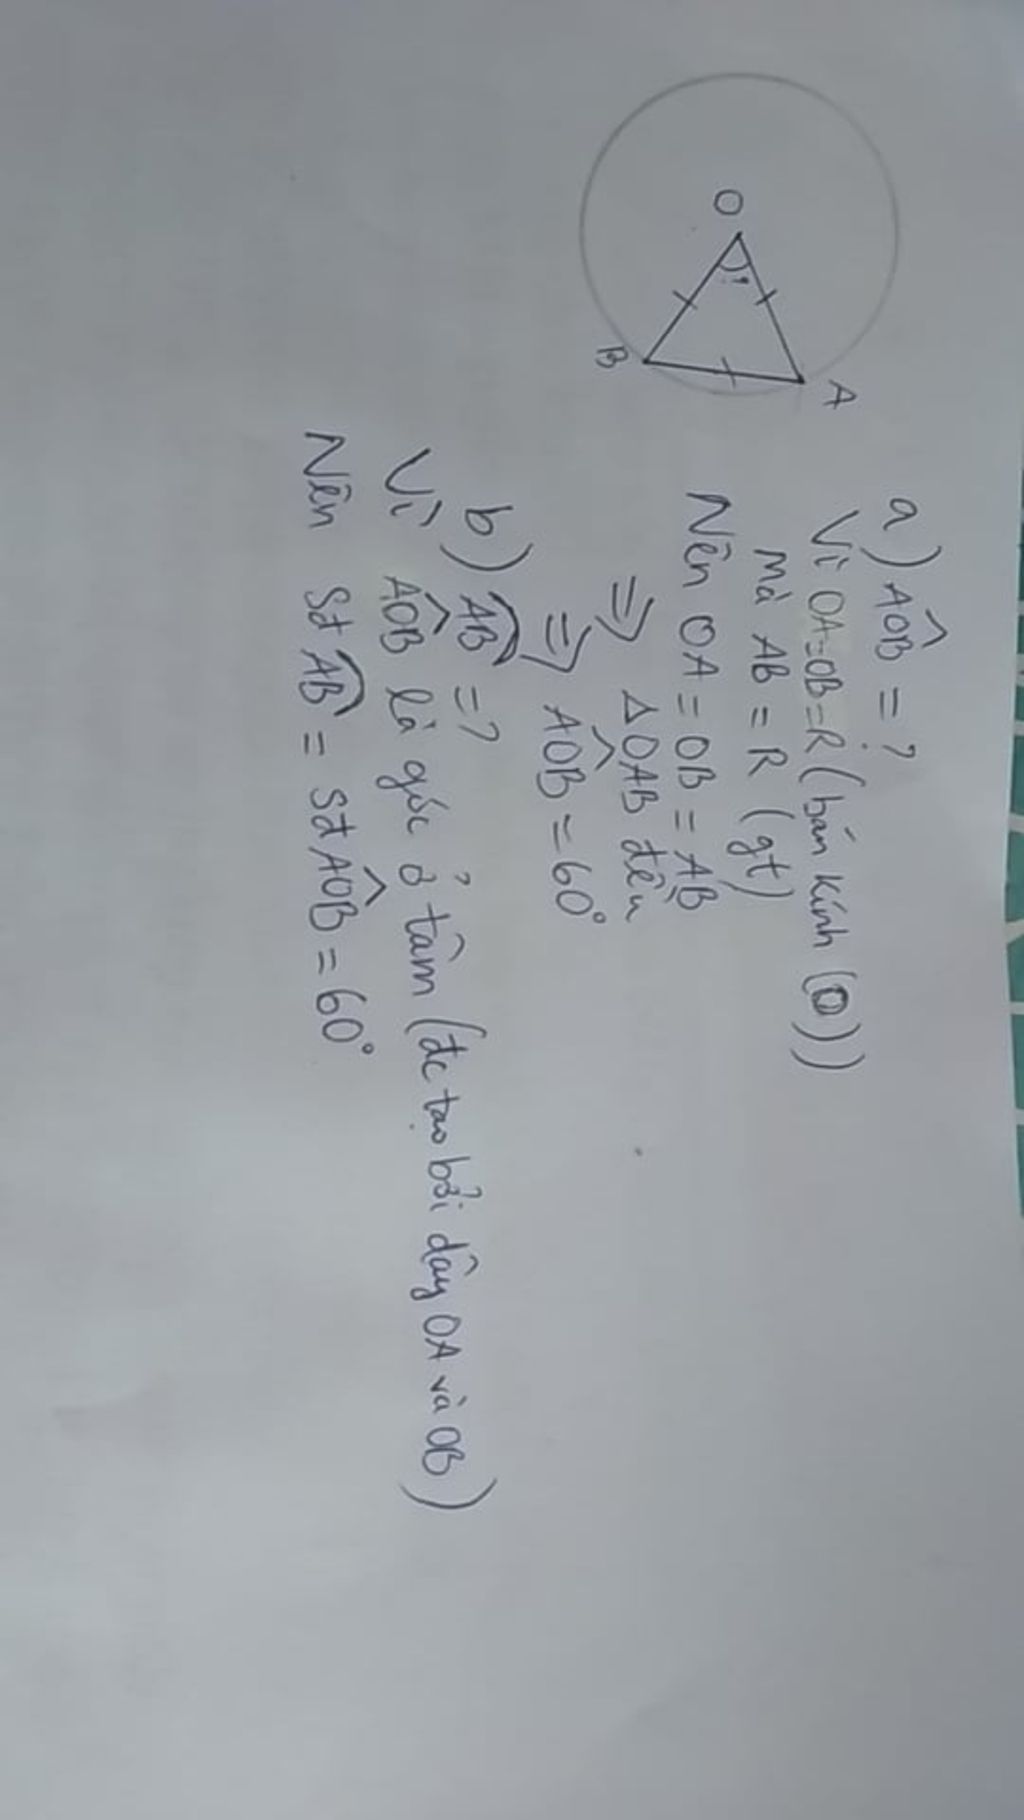 O
1
B
A
a) AÔB = ?
Vì OA=OB=R (bán kính (O))
mà AB = R (gt)
Nên OA = OB = AB
=> ΔOAB đều
=> AÔB = 60°
b) AB = ?
Vì AÔB là góc ở tâm (đc tạo bởi dây OA và OB)
Nên Sđ AB = Sđ AÔB = 60°